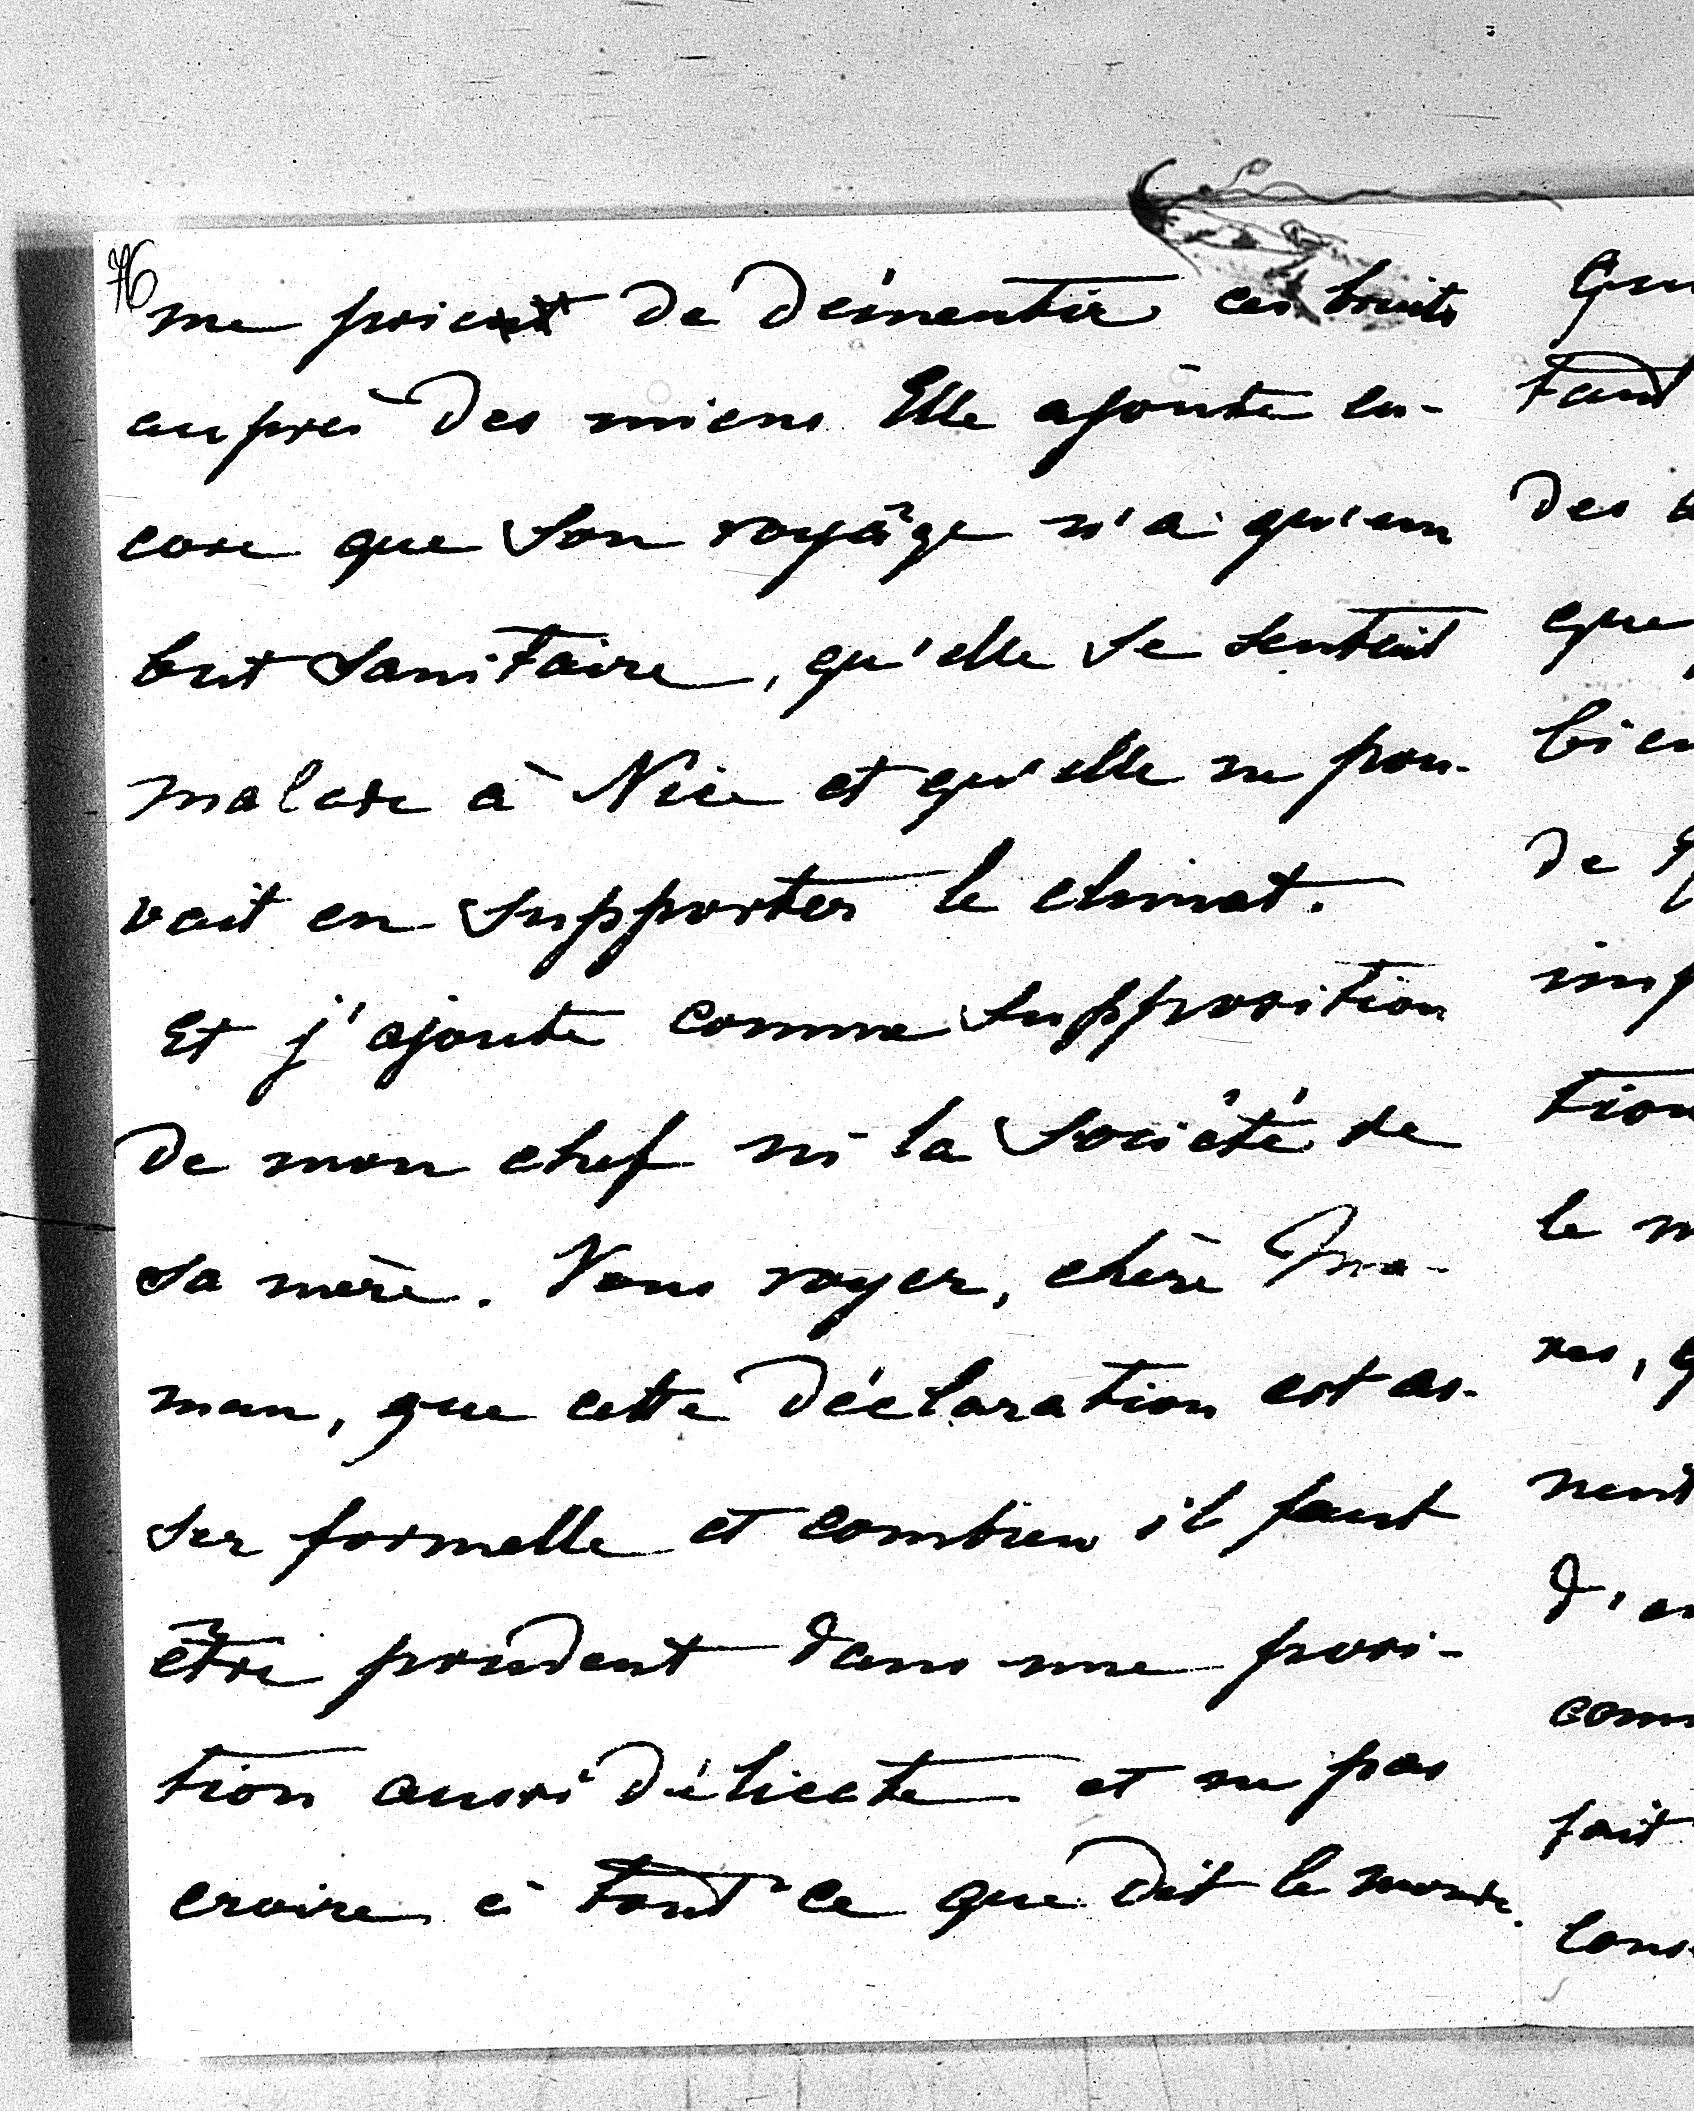 76
me priant de démentir ces bruits
auprès des miens. Elle ajoute en-
core que son voyage n'a qu'un
but sanitaire, qu'elle se sentait
malade à Nice et qu'elle ne pou-
vait en supporter le climat.
Et j'ajoute comme supposition
de mon chef ni la société de
sa mère. Vous voyez, chère Ma-
man, que cette déclaration est as-
sez formelle et combien il faut
être prudent dans une posi-
tion aussi délicate et ne pas
croire à tout ce que dit le monde.
tant
des
que
bien
de
tion
le
d'
fait